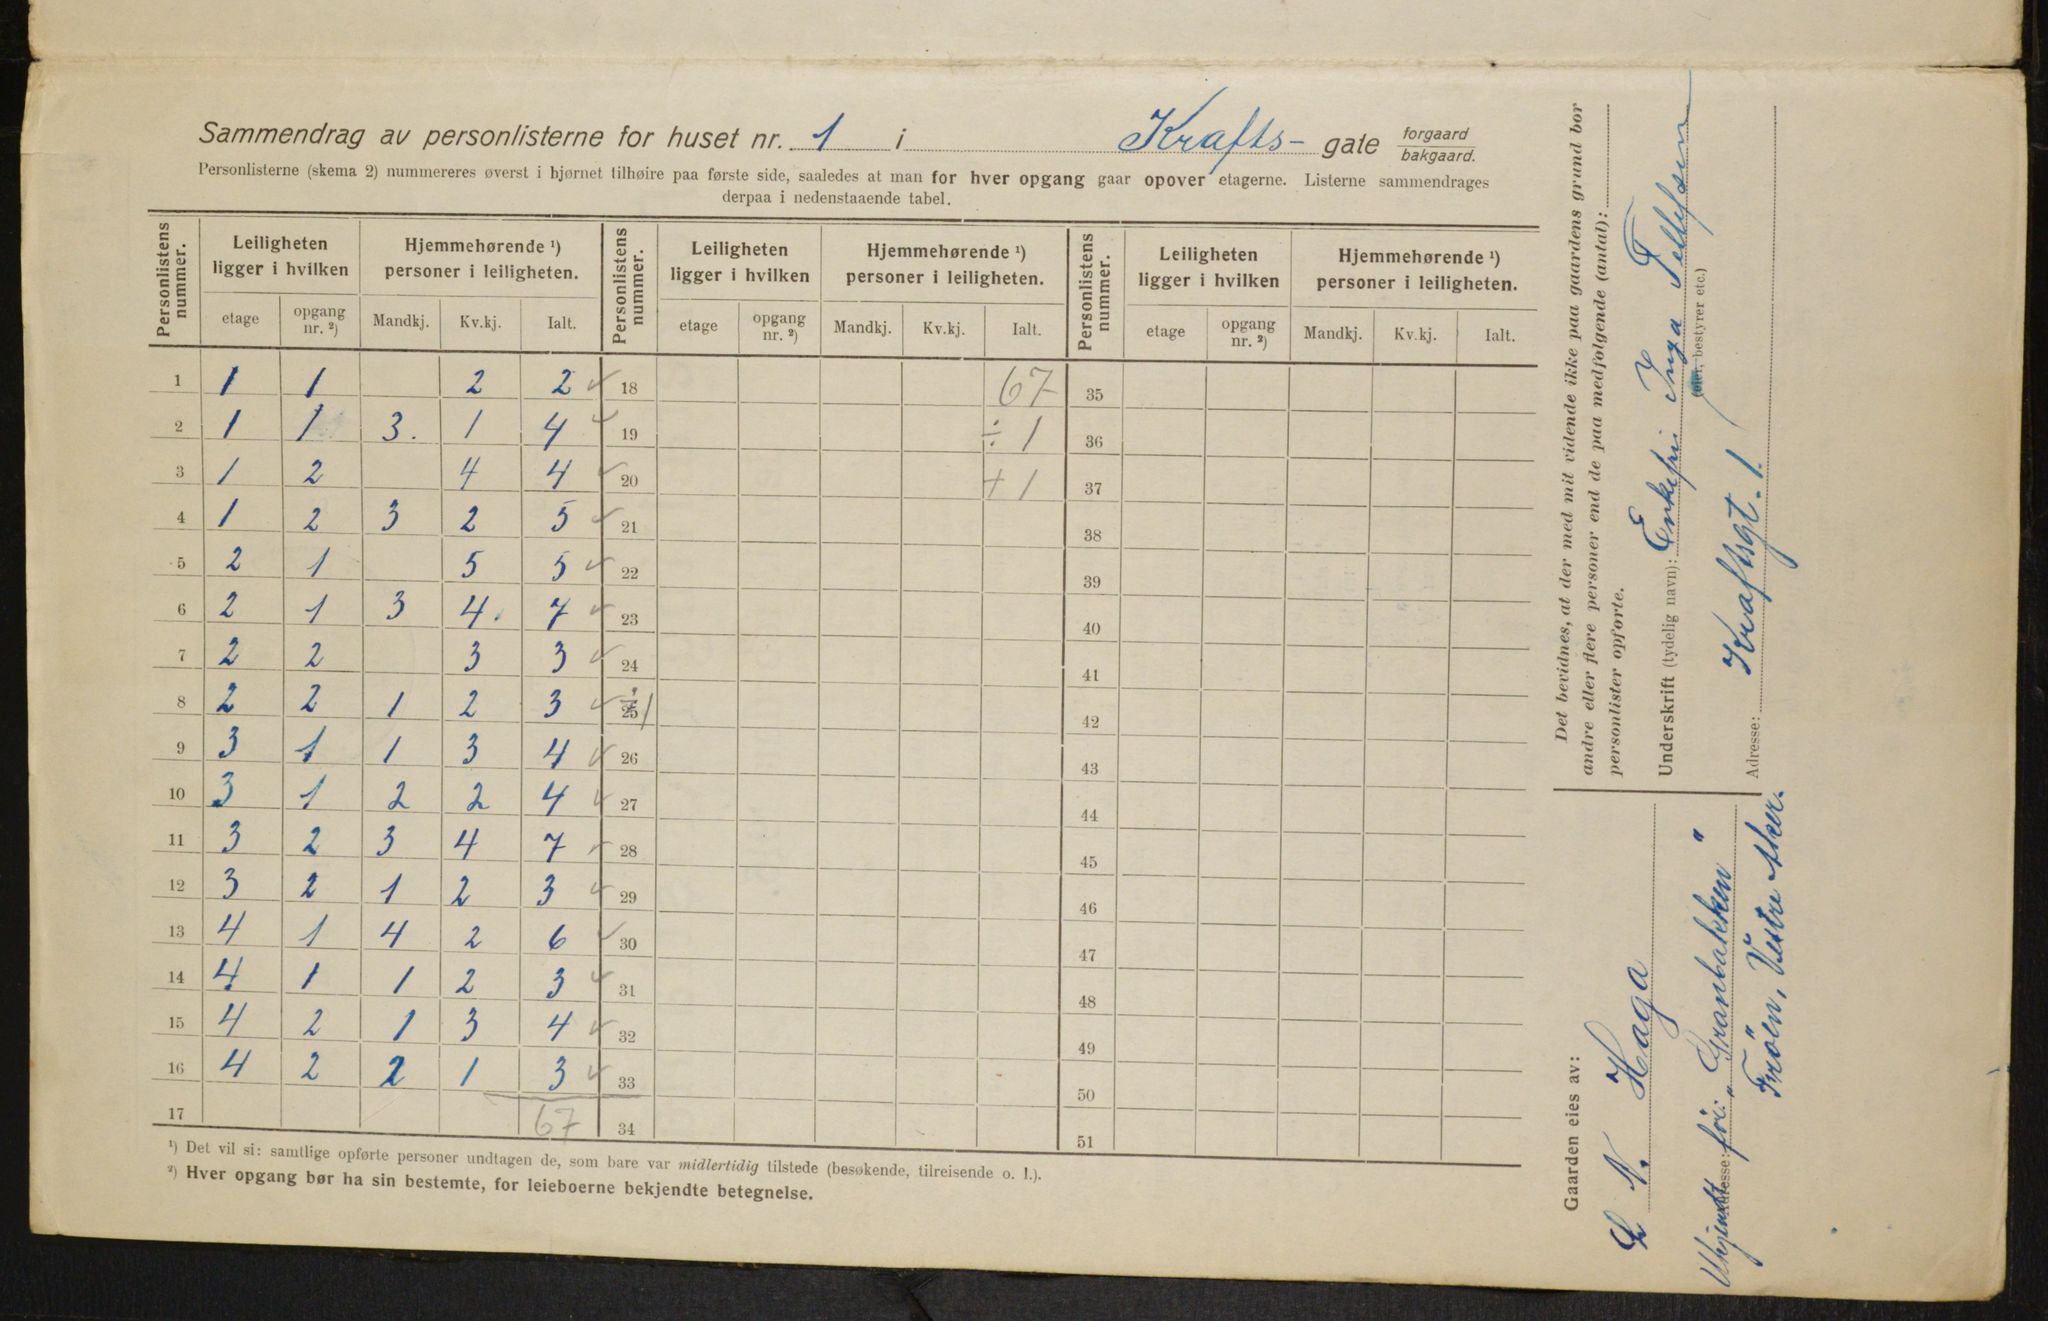 Sammendrag av personlisterne for huset nr. 1 i Krafts- gate forgaard
bakgaard.
Personlisterne (skema 2) nummereres øverst i hjørnet tilhøire paa første side, saaledes at man for hver opgang gaar opover etagerne. Listerne sammendrages
derpaa i nedenstaaende tabel.
Personlistens nummer. Leiligheten ligger i hvilken Hjemmehørende ¹) personer i leiligheten. Personlistens nummer. Leiligheten ligger i hvilken Hjemmehørende ¹) personer i leiligheten. Personlistens nummer. Leiligheten ligger i hvilken Hjemmehørende ¹) personer i leiligheten.
etage opgang nr. ²) Mandkj. Kv.kj. Ialt. etage opgang nr. ²) Mandkj. Kv.kj. Ialt. etage opgang nr. ²) Mandkj. Kv.kj. Ialt.
1 1 1 2 2 18 67 35
2 1 1 3. 1 4 19 ÷ 1 36
3 1 2 4 4 20 + 1 37
4 1 2 3 2 5 21 38
5 2 1 5 5 22 39
6 2 1 3 4. 7 23 40
7 2 2 3 3 24 41
8 2 2 1 2 3 25 ÷1 42
9 3 1 1 3 4 26 43
10 3 1 2 2 4 27 44
11 3 2 3 4 7 28 45
12 3 2 1 2 3 29 46
13 4 1 4 2 6 30 47
14 4 1 1 2 3 31 48
15 4 2 1 3 4 32 49
16 4 2 2 1 3 33 50
17 67 34 51
¹) Det vil si: samtlige opførte personer undtagen de, som bare var midlertidig tilstede (besøkende, tilreisende o. l.).
²) Hver opgang bør ha sin bestemte, for leieboerne bekjendte betegnelse.
Det bevidnes, at der med mit vidende ikke paa gaardens grund bor
andre eller flere personer end de paa medfølgende (antal):
personlister opførte.
Underskrift (tydelig navn): Enkefru Inga Tellefsen
(eier, bestyrer etc.)
Adresse: Kraftsgt. 1.
Gaarden eies av:
N. Haga
Adresse: "Granbakken"
Frøen, Vestre Aker.